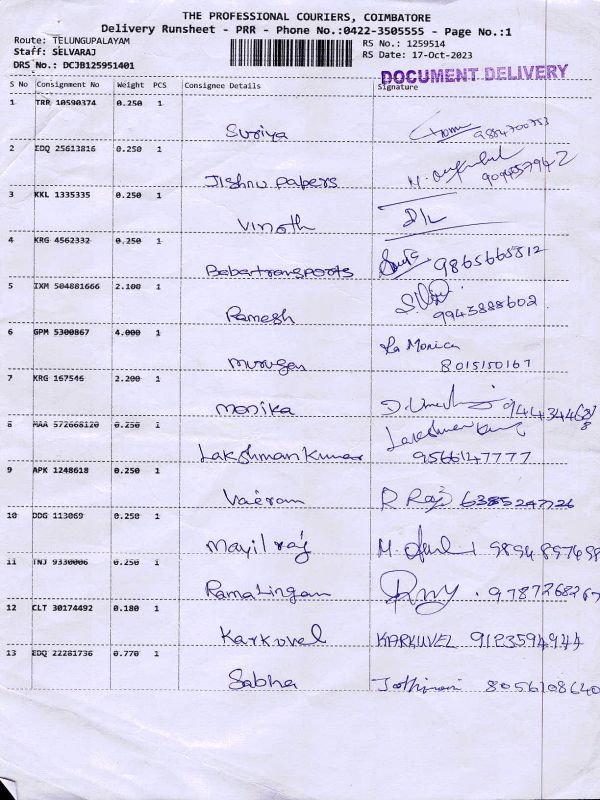 THE PROFESSIONAL COURIERS, COIMBATORE
Delivery Runsheet - PRR - Phone No.:0422-3505555 - Page No.:1
Route: TELUNGUPALAYAM
Staff: SELVARAJ
DRS No.: DCJB125951401
RS No.: 1259514
RS Date: 17-Oct-2023
DOCUMENT DELIVERY
S No Consignment No Weight PCS Consignee Details Signature
1 TRR 10590374 0.250 1
Suriya
2 EDQ 25613816 0.250 1
Jishnu papers
3 KKL 1335335 0.250 1
Vinoth
4 KRG 4562332 0.250 1
Baba transports 9865665812
5 IXM 504881666 2.100 1
Ramesh 9943888602
6 GPM 5300867 4.000 1
murugan 8015150167
7 KRG 167546 2.200 1
monika
8 MAA 572668120 0.250 1
Lakshman Kumar 9566147777
9 APK 1248618 0.250 1
Vairam R Raj 6385247726
10 DDG 113069 0.250 1
Mayil raj 9894897498
11 TNJ 9330006 0.250 1
Ramalingam
12 CLT 30174492 0.180 1
Karkuvel KARKUVEL 9123594944
13 EDQ 22281736 0.770 1
Sabha 8056108640